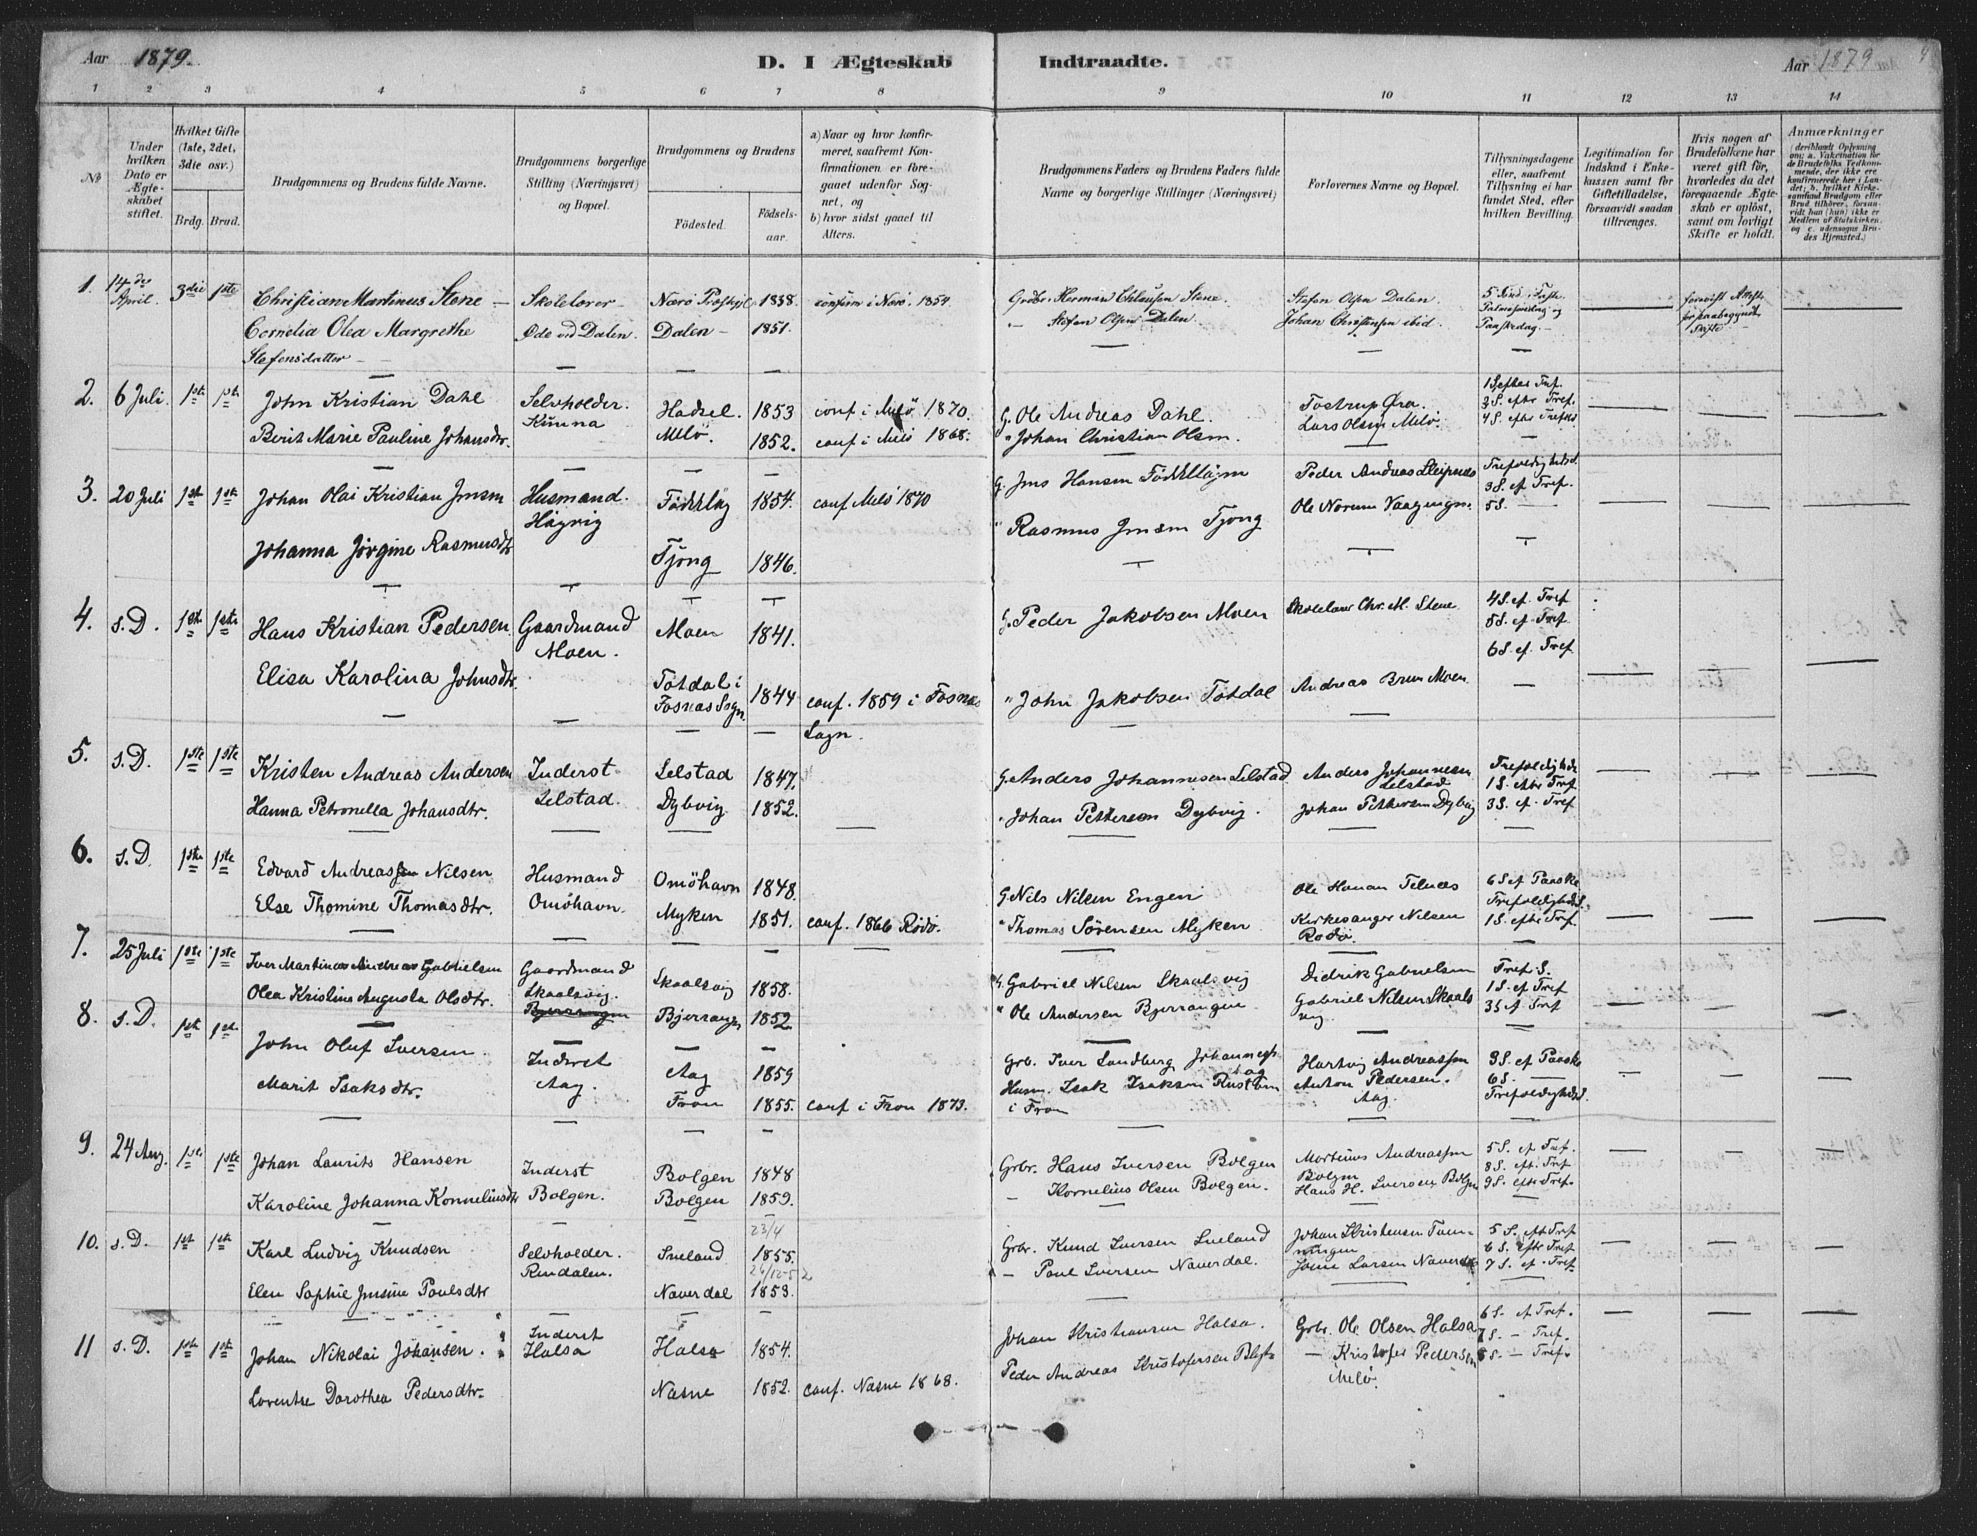 Aar 1879.
D. I Ægteskab Indtraadte.
Aar 1879
1 2 3 4 5 6 7 8 9 10 11 12 13 14
№
Under hvilken Dato er Ægteskabet stiftet.
Hvilket Gifte (1ste, 2det, 3die osv.)
Brdg. Brud.
Brudgommens og Brudens fulde Navne.
Brudgommens borgerlige Stilling (Næringsvei) og Bopæl.
Brudgommens og Brudens
Fødested.
Fødselsaar.
a) Naar og hvor konfirmeret, saafremt Konfirmationen er foregaaet udenfor Sognet, og
b) hvor sidst gaaet til Alters.
Brudgommens Faders og Brudens Faders fulde Navne og borgerlige Stillinger (Næringsvei)
Forlovernes Navne og Bopæl.
Tillysningsdagene eller, saafremt Tillysning ei har fundet Sted, efter hvilken Bevilling.
Legitimation for Indskud i Enkekassen samt for Giftetilladelse, forsaavidt saadan tiltrænges.
Hvis nogen af Brudefolkene har været gift før, hvorledes da det foregaaende Ægteskab er opløst, samt om lovligt Skifte er holdt.
Anmærkninger
(deriblandt Oplysning om: a. Vakcination for de Brudefolks Vedkommende, der ikke ere konfirmerede her i Landet; b. hvilket Kirkesamfund Brudgom eller Brud tilhører, forsaavidt han (hun) ikke er Medlem af Statskirken, og c. udensogns Brudes Hjemsted.)
1. 14de April. 3die 1ste Christian Martinus Stene — Skolelærer Nærø Præstgj. 1838. confirm i Nærø. 1854. Grdbr. Herman Chlausen Stene. Stefan Olsen Dalen. 5 Sønd. i Faste
Cornelia Olea Margrethe Øde ved Dalen. Dalen — 1851. — Stefan Olsen Dalen. Johan Christensen ibid. Palmesøndag og
Stefensdatter — Paaskedag. —
forevist Attest for paabegyndt Skifte
2. 6 Juli. 1ste 1ste John Kristian Dahl Selvholder. Hadsel. 1853 conf i Melö 1870. G. Ole Andreas Dahl. Tostrup Øra. 1 S. efter Tref.
Berit Marie Pauline Johansdtr. Kunna Melö. 1852. conf i Melö 1868. " Johan Christian Olsen. Lars Olsen Melö. 3 S. eftr Tref.
4 S. eftr Trefold
3. 20 Juli 1ste 1ste Johan Olai Kristian Jensen Husmand. 1854. conf Melö 1870 G. Jens Hansen Peder Andreas Trefoldighedsd.
Högvig 3 S. ef Tref.
Johanna Jørgine Rasmusdtr Tjong 1846. " Rasmus Jensen Tjong Ole Norum 5 S. —
4. s. D. 1ste 1ste Hans Kristian Pedersen Gaardmand Moen 1841. G. Peder Jakobsen Moen Skolelærer Chr. M. Stene 4 S. ef. Tref
Moen. 5 S. ef. Tref
Elisa Karolina Johnsdtr. Totdal i Fosnæs Sogn 1844 conf. 1859 i Fosnæs Sogn. " John Jakobsen Totdal Andreas Brun Moen 6 S. ef. Tref
5. s. D. 1ste 1ste Kristen Andreas Andersen Inderst Selstad 1847. G. Anders Johannesen Selstad Anders Johannesen Selstad Trefoldighedsd
Hanna Petronella Johansdtr. Selstad. Dybvig 1852. " Johan Pettersen Dybvig. Johan Pettersen Dybvig 1 S. eftr Tref
3 S. ef. Tref
6. s. D. 1ste 1ste Edvard Andreassen Nilsen Husmand Omöhavn 1848. G. Nils Nilsen Engen Ole Hanan Telnæs 6 S. ef Paaske
Else Thomine Thomasdtr. Omöhavn. Myken 1851. conf. 1866 Rödö. " Thomas Sörensen Myken Kirkesanger Nilsen Rödö. Trefoldighedsd.
1 S. eftr Tref
7. 25 Juli 1ste 1ste Iver Martinus Andreas Gabrielsen Gaardmand Skaalsvig 1858. G. Gabriel Nilsen Skaalsvig Didrik Gabrielsen Tref. S.
Olea Kristine Augusta Olsdtr. Skaalsvig. Bjerrangen 1852 " Ole Andersen Bjerrangen Gabriel Nilsen Skaalsvig. 1 S. ef Tref
Bjerrangen 3 S ef Tref
8. s. D. 1ste 1ste John Oluf Iversen Inderst Aag 1859 Grb. Iver Sundberg Aag Hartvig Andreassen 3 S. ef Paaske
Marit Isaksdtr. Aag. Fron 1855. conf i Fron 1873. Husm. Isak Isaksen i Fron Anton Pedersen. Aag. 6 S. —
Trefoldighedsd.
9. 24 Aug. 1ste 1ste Johan Laurits Hansen Inderst Bolgen 1848 Grbr. Hans Iversen Bolgen Martinus Andreassen Bolgen 5 S. ef Tref.
Karoline Johanna Konneliusdtr Bolgen. Bolgen 1859. — Kornelius Olsen Bolgen. Hans H. Iversen Bolgen 8 S. eft. Tref
9 S. eftr Tref.
10. s. D. 1ste 1ste Karl Ludvig Knudsen Selvholder. 23/4 1855. Grbr. Knud Iversen Johan Kristensen 5 S. eft Tref
Rendalen. 6 S. eftr Tref
Elen Sophie Jensine Poulsdtr Naverdal 1853. — Poul Iversen Naverdal. Larsen Naverdal 7 S. ef. Tref
11 s. D. 1ste 1ste Johan Nikolai Johansen. Inderst Halsa 1854. Johan Kristiansen Halsa. Grbr. Ole Olsen Halsa 6 S. ef Tref.
Halsa 7 S. — Tref.
Lorentse Dorothea Pedersdtr. Næsne 1852. conf. Næsne 1868. Peder Andreas Kristofersen — Kristofer Pedersen Melö. 8 S. — Tref.